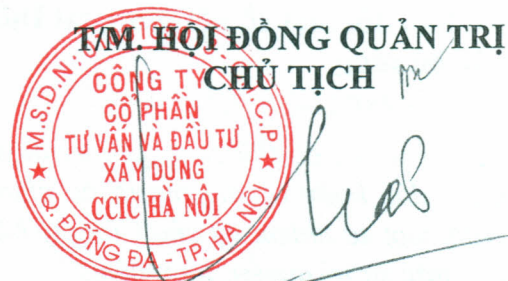 T/M. HỘI ĐỒNG QUẢN TRỊ
CHỦ TỊCH
CÔNG TY
CỔ PHẦN
TƯ VẤN VÀ ĐẦU TƯ
XÂY DỰNG
CCIC HÀ NỘI
Q. ĐỐNG ĐA - TP. HÀ NỘI